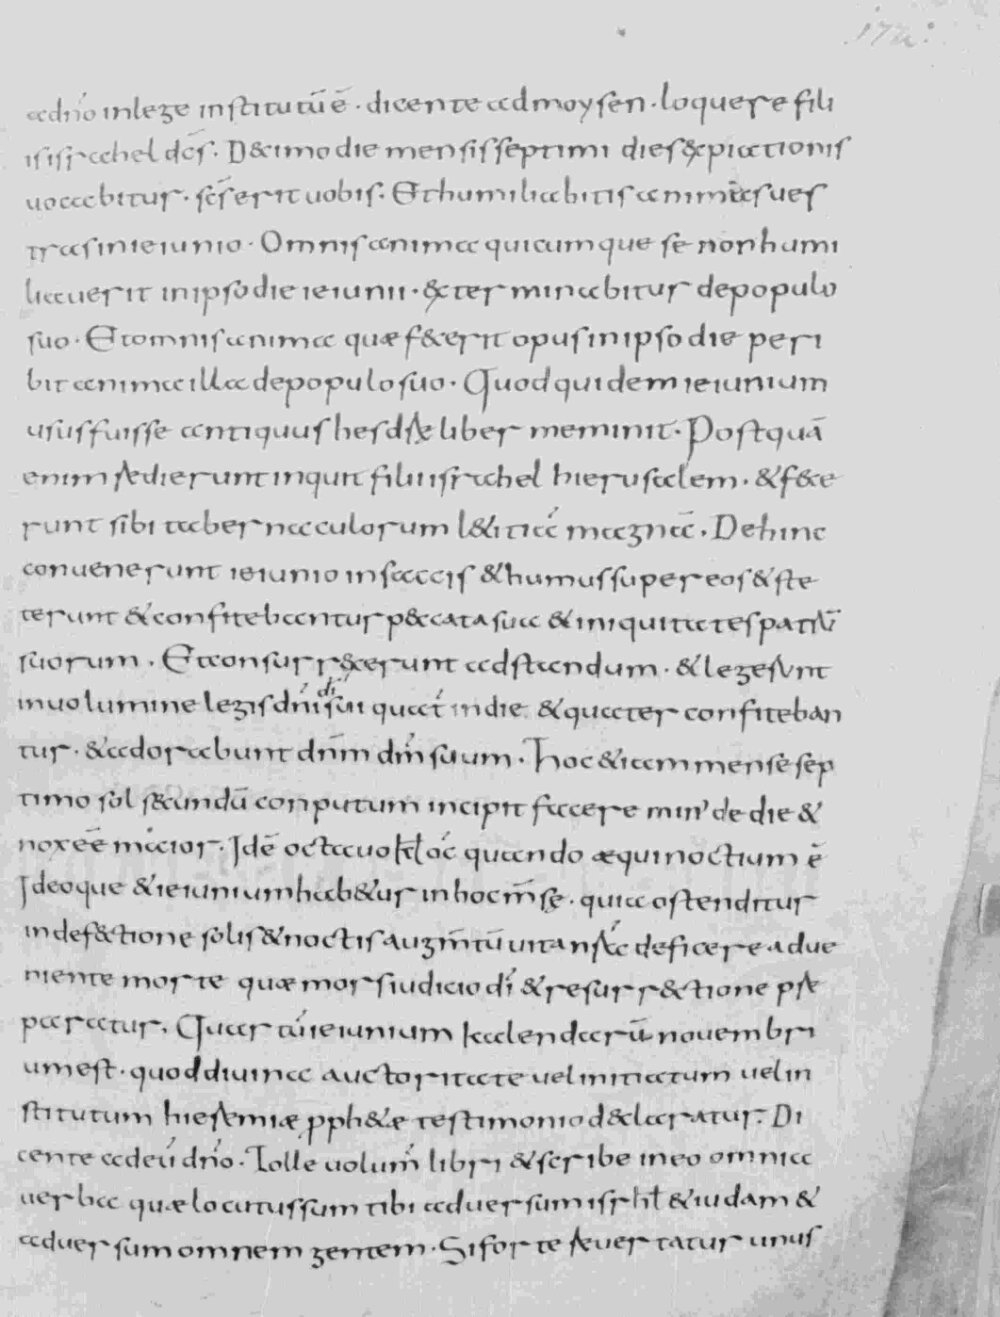 172:
adnō inlege institutū ē · dicente admoysen · loquere fili
isisrahel dc̄s · D&imo die mensis septimi dies expiationis
uocabitur · sc̄s erit uobis · Ethumiliabitis animas ues
tras inieiunio · Omnis anima quicumque se non humi
liauerit inipso die ieiunii · exterminabitur depopulo
suo · Etomnis anima quæ f&erit opus inipso die peri
bit anima illa depopulo suo · Quod quidem ieiunium
usus fuisse antiquus hesdrę liber meminit · Postquā
enim redierunt inquit filii israhel hierusalem · & f&e
runt sibi tabernaculorum l&itia magna · Dehinc
convenerunt ieiunio insaccis & humus super eos & ste
terunt & confitebantur p&cata sua & iniquitates patrū
suorum · Et consurrexerunt adstandum · & legerunt
inuolumine legis dn̄i di sui quat indie & quater confiteban
tur · & adorabunt dnm̄ dm̄ suum · Hoc & iam mense sep
timo sol secundū conputum incipit facere min' de die &
nox eē maior · Idē octauo kl oc quando æquinoctium ē
Ideoque & ieiunium hab&ur in hoc m̄se · quia ostenditur
indef&tione solis & noctis augm̄tū uita nr̄a deficere adue
niente morte quæ mors iudicio dī & resurr&tione pre
paratur · Quartū ieiunium kalendarū novembri
um est · quod diuina auctoritate uel initiatum uel in
stitutum hieremiæ pph&æ testimonio d&laratur · Di
cente adeū dn̄o · Tolle uolum̄ libri & scribe ineo omnia
uerba quæ locutus sum tibi aduersum isrhl & iudam &
aduersum omnem gentem · Si forte reuertatur unus